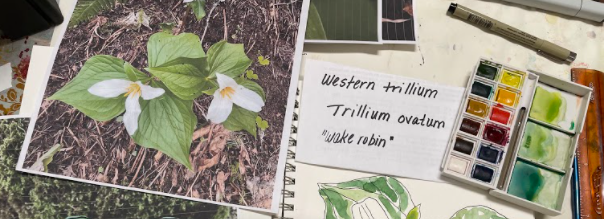 Western trillium
Trillium ovatum
"wake robin"